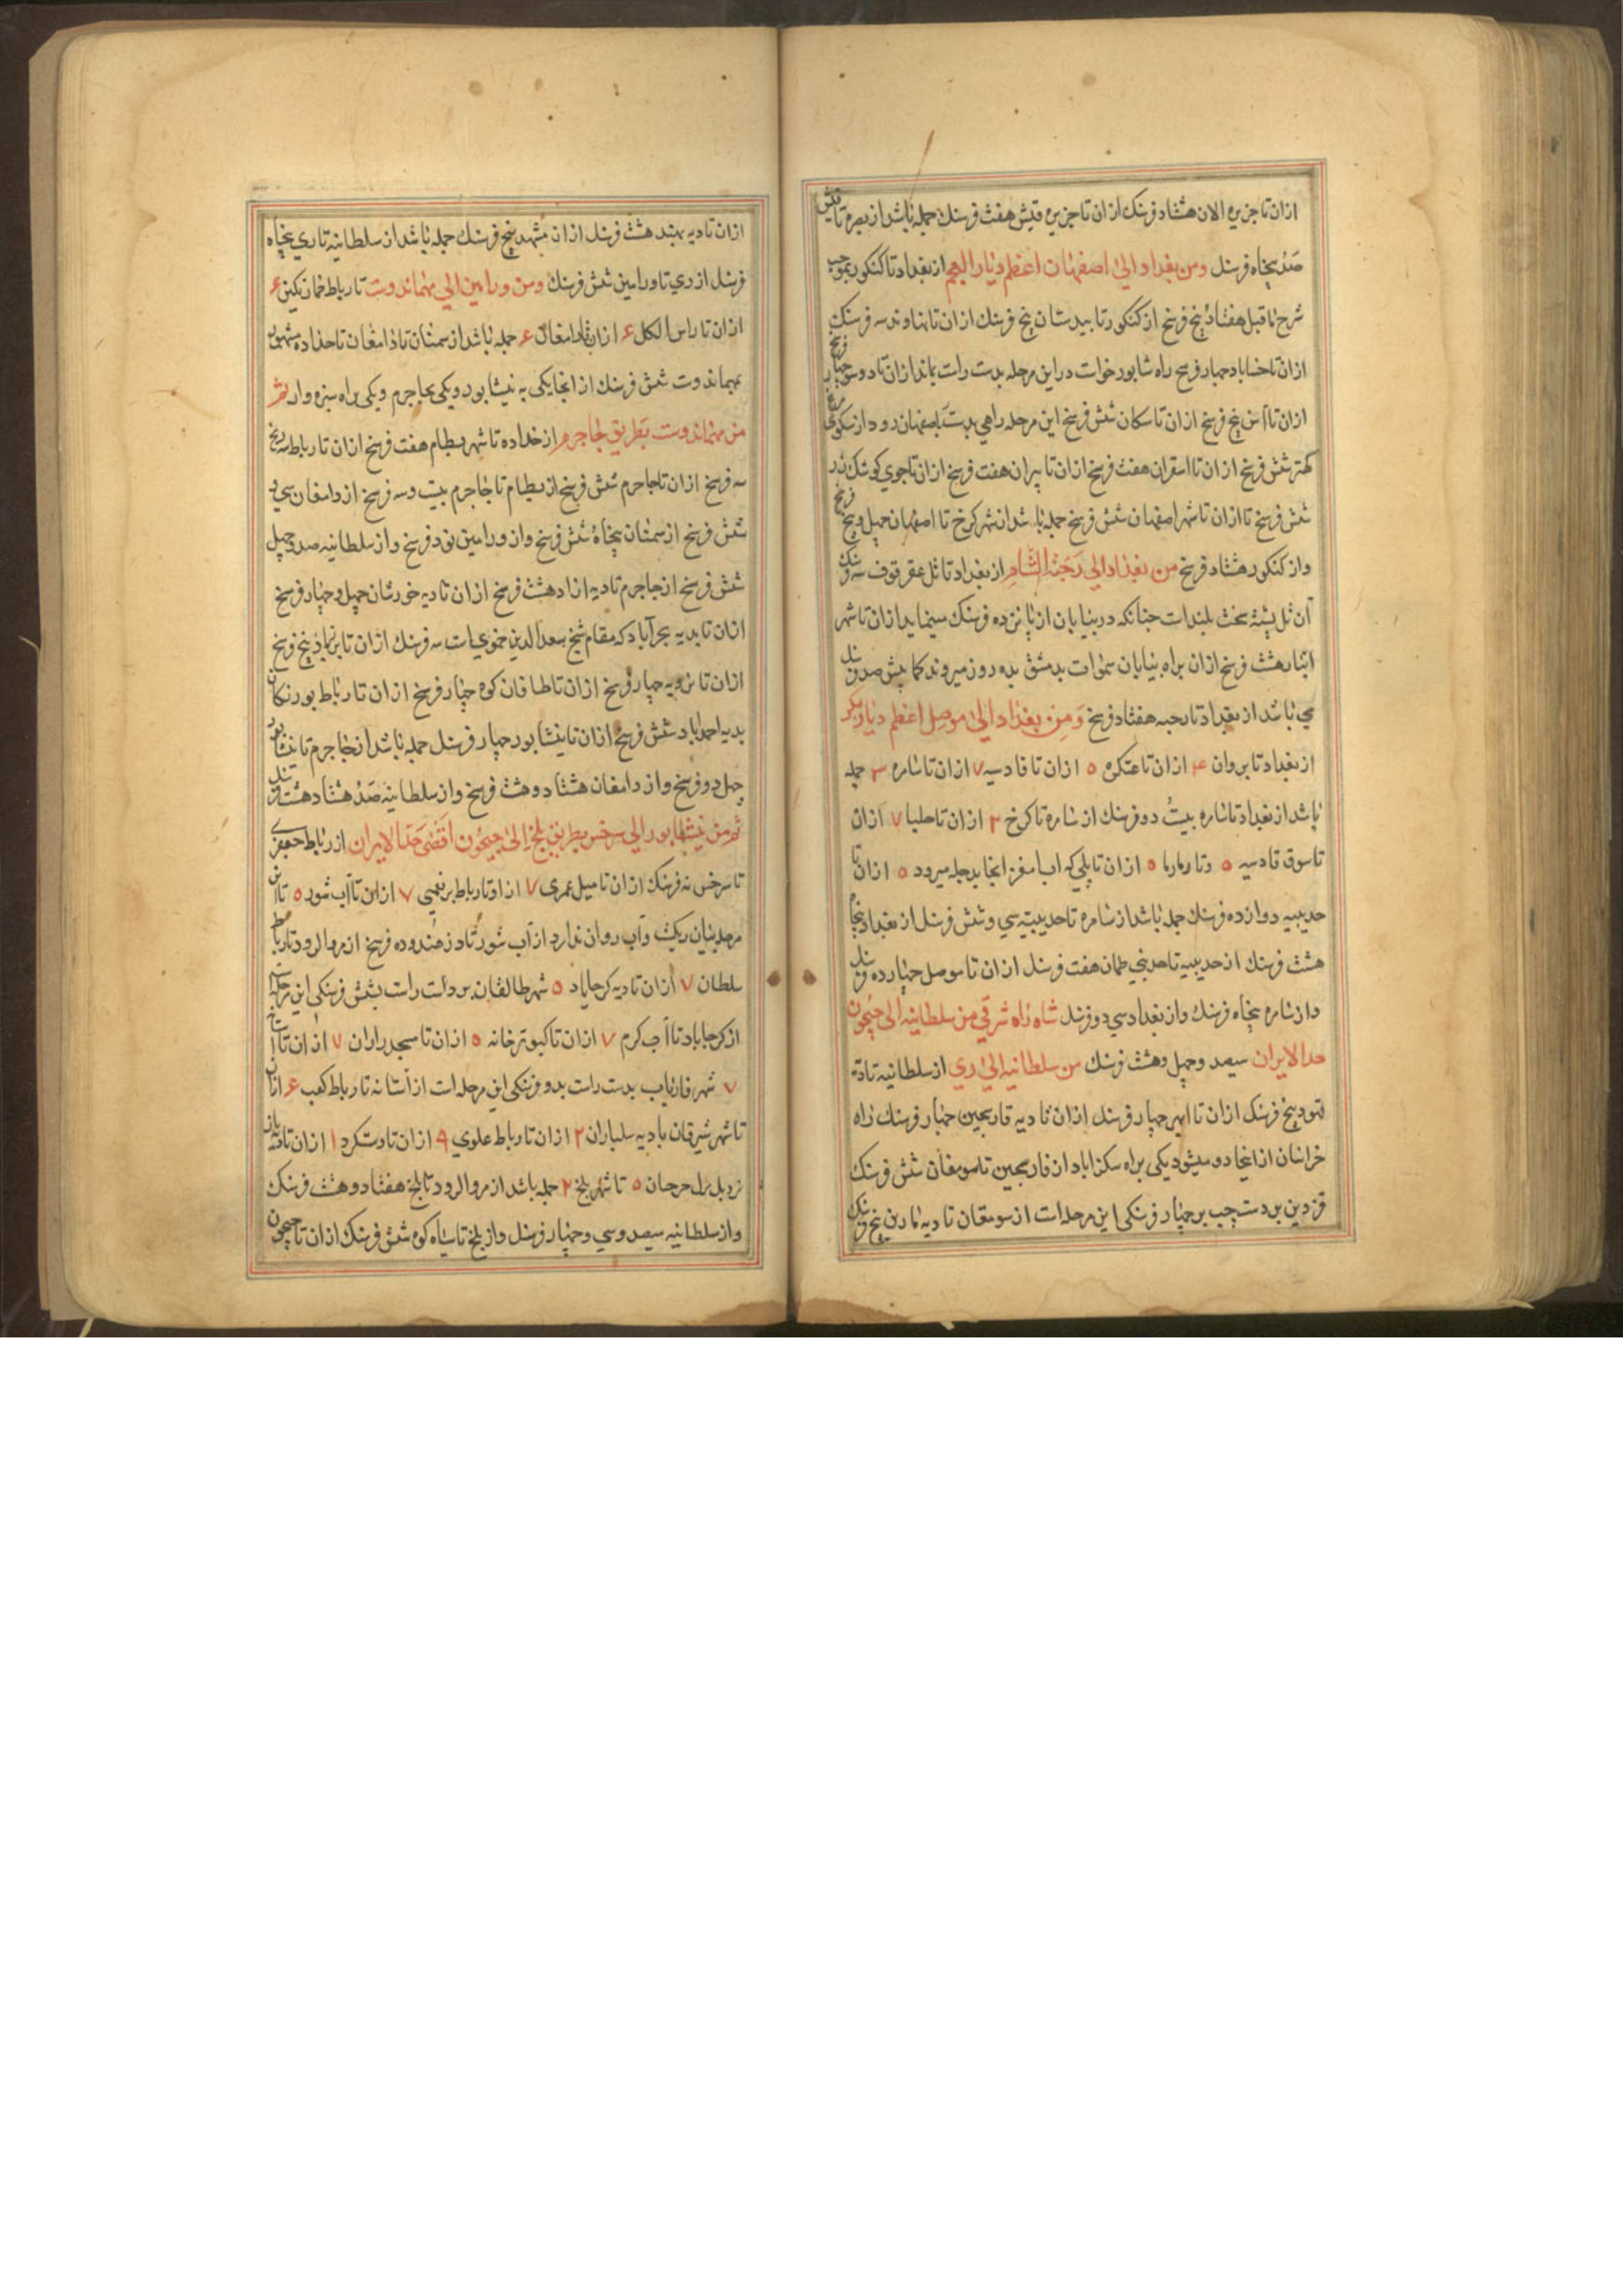 ازان تا جزیره الان هشتاد فرسنك ازان تا جزیره قیش هفت فرسنك جمله باشد از بصره تا قیش
صد پنجاه فرسنك ومن بغداد الی اصفهان اعظم دیار العجم از بغداد تا کنکور بموجب
شرح ماقبل هفتاد پنج فرسخ از کنکور تا بیدستان پنج فرسنك ازان تا نهاوند سه فرسنك
ازان تا چهار فرسخ راه شابور خواست دراین مرحله بدست راست بماند ازان تا چهار فرسخ
ازان تا پنج فرسخ ازان تا سکان شش فرسخ این مرحله راهی بدست باصفهان رود از
کهتر شش فرسخ ازان تا اسقران هفت فرسخ ازان تا تیران هفت فرسخ ازان تا جوی کوشك
شش فرسخ تا ازان تا شهر اصفهان شش فرسخ جمله باشد از شهر کرخ تا اصفهان چهل و پنج فرسخ
واز کنکور هشتاد فرسخ من بغداد الی رحبة الشام از بغداد تا تل عقرقوف سه فرسنك
آن تل پشتهٔ سخت بلند است چنانکه در بیابان از پانزده فرسنك مینماید ازان تا شهر
انبار هشت فرسخ ازان براه بیابان سموات بدمشق بده روز میروند کما بیش صد فرسنك
می باشد از بغداد تا رحبه هفتاد فرسخ ومن بغداد الی موصل اعظم دیار بکر
از بغداد تا بروان ۴ ازان تا عتکره ٥ ازان تا قادسیه ۷ ازان تا سامره ۳ جمله
باشد از بغداد تا سامره بیست دو فرسنك از سامره تا کرخ ۲ ازان تا حلبا ۷ ازان
تا سوق قادسیه ٥ وتا رمارما ٥ ازان تا پلی که اب انجا بدجله میرود ٥ ازان تا
حدیبیه دوازده فرسنك جمله باشد از سامره تا حدیبیه سی و شش فرسنك از بغداد پنجاه
هشت فرسنك از حدیبیه تا طمان هفت فرسنك ازان تا موصل چهارده فرسنك
واز سامره پنجاه فرسنك واز بغداد سی دو فرسنك شاه راه شرقی من سلطانیه الی جیحون
حد الایران سیصد وچهل وهشت فرسنك من سلطانیه الی ری از سلطانیه تا ده
قهود پنج فرسنك ازان تا ابهر چهار فرسنك ازان تا دیه فارسجین چهار فرسنك راه
خراسان از اینجا دو میشود یکی براه سکزاباد از فارسجین تا سومغان شش فرسنك
قزوین بر دست چپ بر چهار فرسنکی این مرحله است از سومغان تا دیه پنج فرسنك
ازان تا دیه بهند هشت فرسنك ازان مشهد پنج فرسنك جمله باشد از سلطانیه تا ری پنجاه
فرسنك از ری تا ورامین شش فرسنك ومن ورامین الی مهماندوست تا رباط خمارتکین ۶
ازان تا راس الکلب ۶ ازان تا دامغان ۶ جمله باشد از سمنان تا دامغان تا حداده مشهور
بمهماندوست شش فرسنك از انجا یکی به نیشابور ویکی بجاجرم ویکی براه سبزه وار ثم
من مهماندوست بطریق جاجرم از حداده تا شهر بسطام هفت فرسخ ازان تا رباط
سه فرسخ ازان تا جاجرم شش فرسخ از بسطام تا جاجرم بیست وسه فرسخ از دامغان سی و
شش فرسخ از سمنان پنجاه شش فرسخ واز ورامین نود فرسخ واز سلطانیه صد وچهل
شش فرسخ از جاجرم تا دیه ازاد هشت فرسخ ازان تا دیه خورشان چهل وچهار فرسخ
ازان تا بدیه بحرآباد که مقام شیخ سعدالدین حموی است سه فرسنك ازان تا پنج فرسخ
ازان تا چهار فرسخ ازان تا طاقان کوه چهار فرسخ ازان تا رباط بورنکان
بدیه احمداباد شش فرسخ ازان تا نیشابور چهار فرسنك جمله باشد از جاجرم تا نیشابور
چهل دو فرسخ واز دامغان هشتاد وهشت فرسخ واز سلطانیه صد هشتاد هشت فرسنك
ثم من نیشابور الی سرخس بطریق بلخ الی جیحون اقصی حد الایران از رباط جعفری
تا سرخس نه فرسنك ازان تا میل عمری ۷ ازو تا رباط بونعیمی ۷ ازان تا آب شور ٥
مرحله بیابان ریکست وآب روان ندارد از آب شور تا فرسخ از مروالرود تا رباط
سلطان ۷ ازان تا دیه کرجاباد ٥ شهر طالقان بر دست راست بشش فرسنکی این مرحله
از کرجاباد تا آب کرم ۷ ازان تا کبوترخانه ٥ ازان تا مسجد رازان ۷ ازان تا
۷ شهر فاریاب بدست راست بدو فرسنکی این مرحله است از آستانه تا رباط کعب ۶ ازان
تا شهر شبرقان با دیه سلباران ۲ ازان تا رباط علوی ۹ ازان تا دستکرد ۱ ازان تا
٥ تا شهر بلخ ۲ جمله باشد از مروالرود تا بلخ هفتاد وهشت فرسنك
واز سلطانیه سیصد وسی وچهار فرسنك واز بلخ تا سیاه کوه شش فرسنك ازان تا جیحون